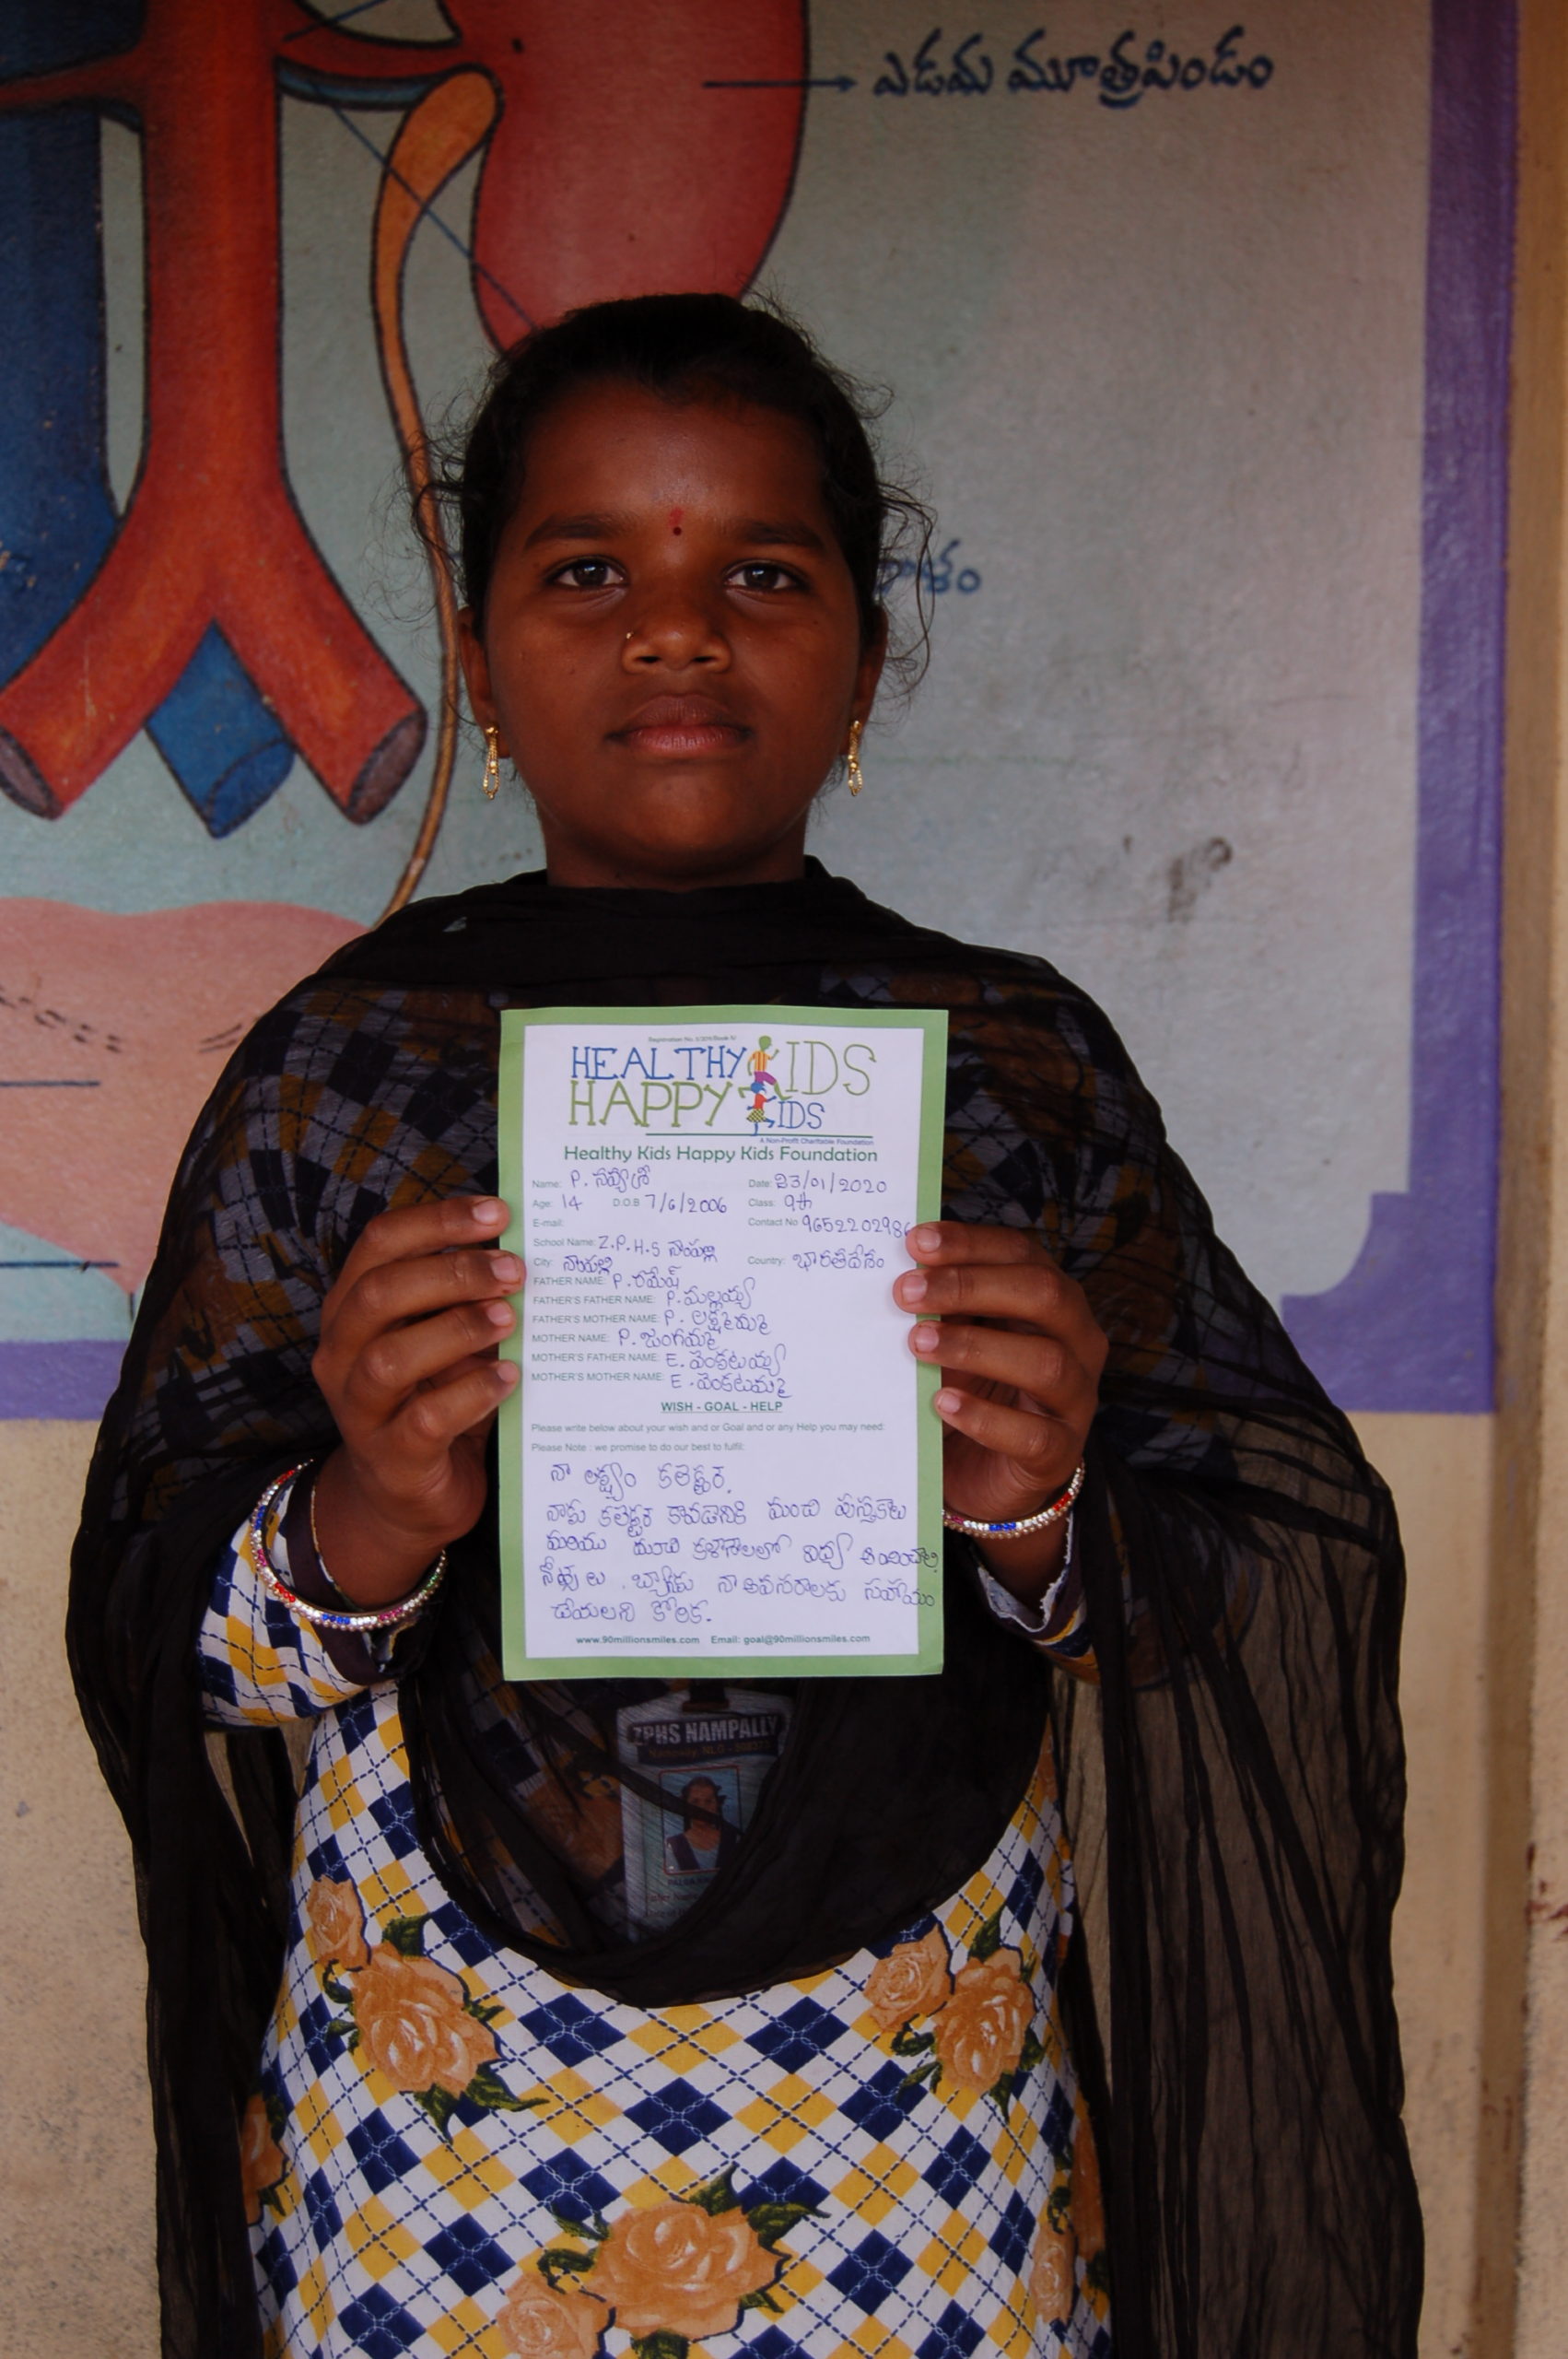 ఎడమ మూత్రపిండం
ళం
HEALTHY KIDS
HAPPY KIDS
A Non-Profit Charitable Foundation
Healthy Kids Happy Kids Foundation
Name: P. నవ్యశ్రీ Date: 23/01/2020
Age: 14 D.O.B 7/6/2006 Class: 9th
E-mail: Contact No 9652202986
School Name: Z.P.H.S నాంపల్లి
City: నాంపల్లి Country: భారతదేశం
FATHER NAME: P. రమేష్
FATHER'S FATHER NAME: P. మల్లయ్య
FATHER'S MOTHER NAME: P. లక్ష్మమ్మ
MOTHER NAME: P. జంగమ్మ
MOTHER'S FATHER NAME: E. వెంకటయ్య
MOTHER'S MOTHER NAME: E. వెంకటమ్మ
WISH - GOAL - HELP
Please write below about your wish and or Goal and or any Help you may need:
Please Note : we promise to do our best to fulfil:
నా లక్ష్యం కలెక్టర్.
నాకు కలెక్టర్ కావడానికి మంచి పుస్తకాలు
మరియు మంచి కళాశాలలో విద్య అందించాలి
నోట్సులు, బ్యాగు నా అవసరాలకు సహాయం
చేయలని కోరిక.
www.90millionsmiles.com Email: goal@90millionsmiles.com
ZPHS NAMPALLY